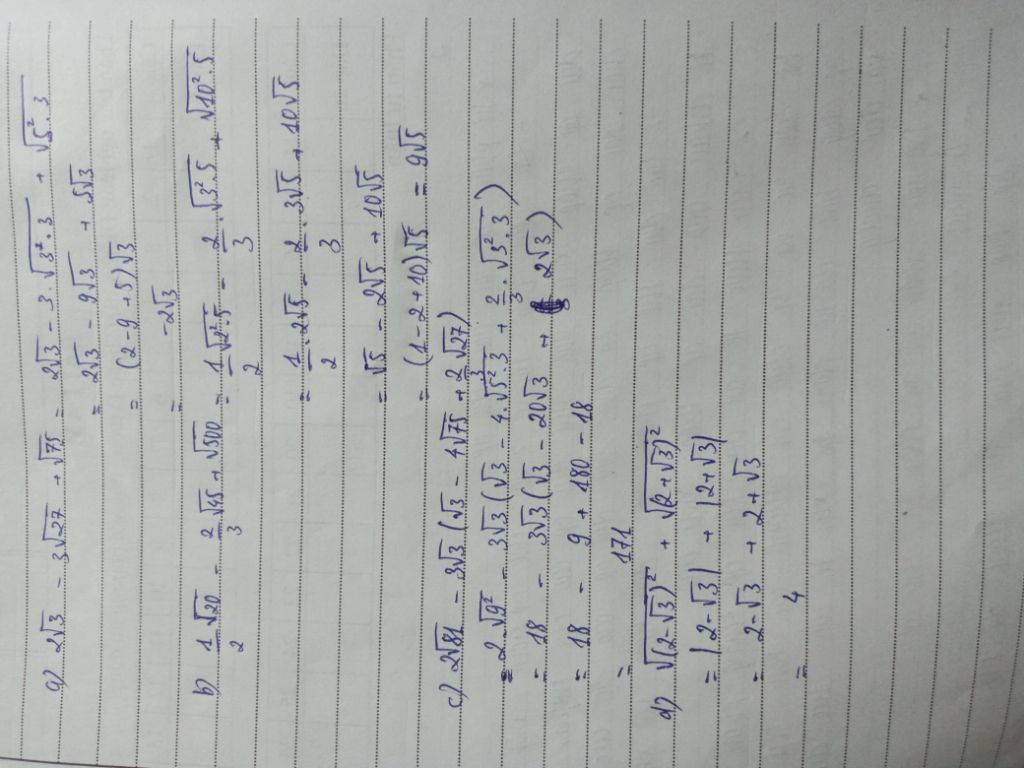 a) 2√3 - 3√27 + √75 = 2√3 - 3.√(3².3) + √(5².3)
= 2√3 - 9√3 + 5√3
= (2-9+5)√3
= -2√3
b) 1/2 √20 - 2/3 √45 + √500 = 1/2 √(2².5) - 2/3 . √(3².5) + √(10².5)
= 1/2 . 2√5 - 2/3 . 3√5 + 10√5
= √5 - 2√5 + 10√5
= (1-2+10)√5 = 9√5
c) 2√81 - 3√3 (√3 - 4√75 + 2/3 √27)
= 2.√9² - 3√3 (√3 - 4.√(5².3) + 2/3 . √(3².3))
= 18 - 3√3 (√3 - 20√3 + 2√3)
= 18 - 9 + 180 - 18
= 171
d) √(2-√3)² + √(2+√3)²
= |2-√3| + |2+√3|
= 2-√3 + 2+√3
= 4